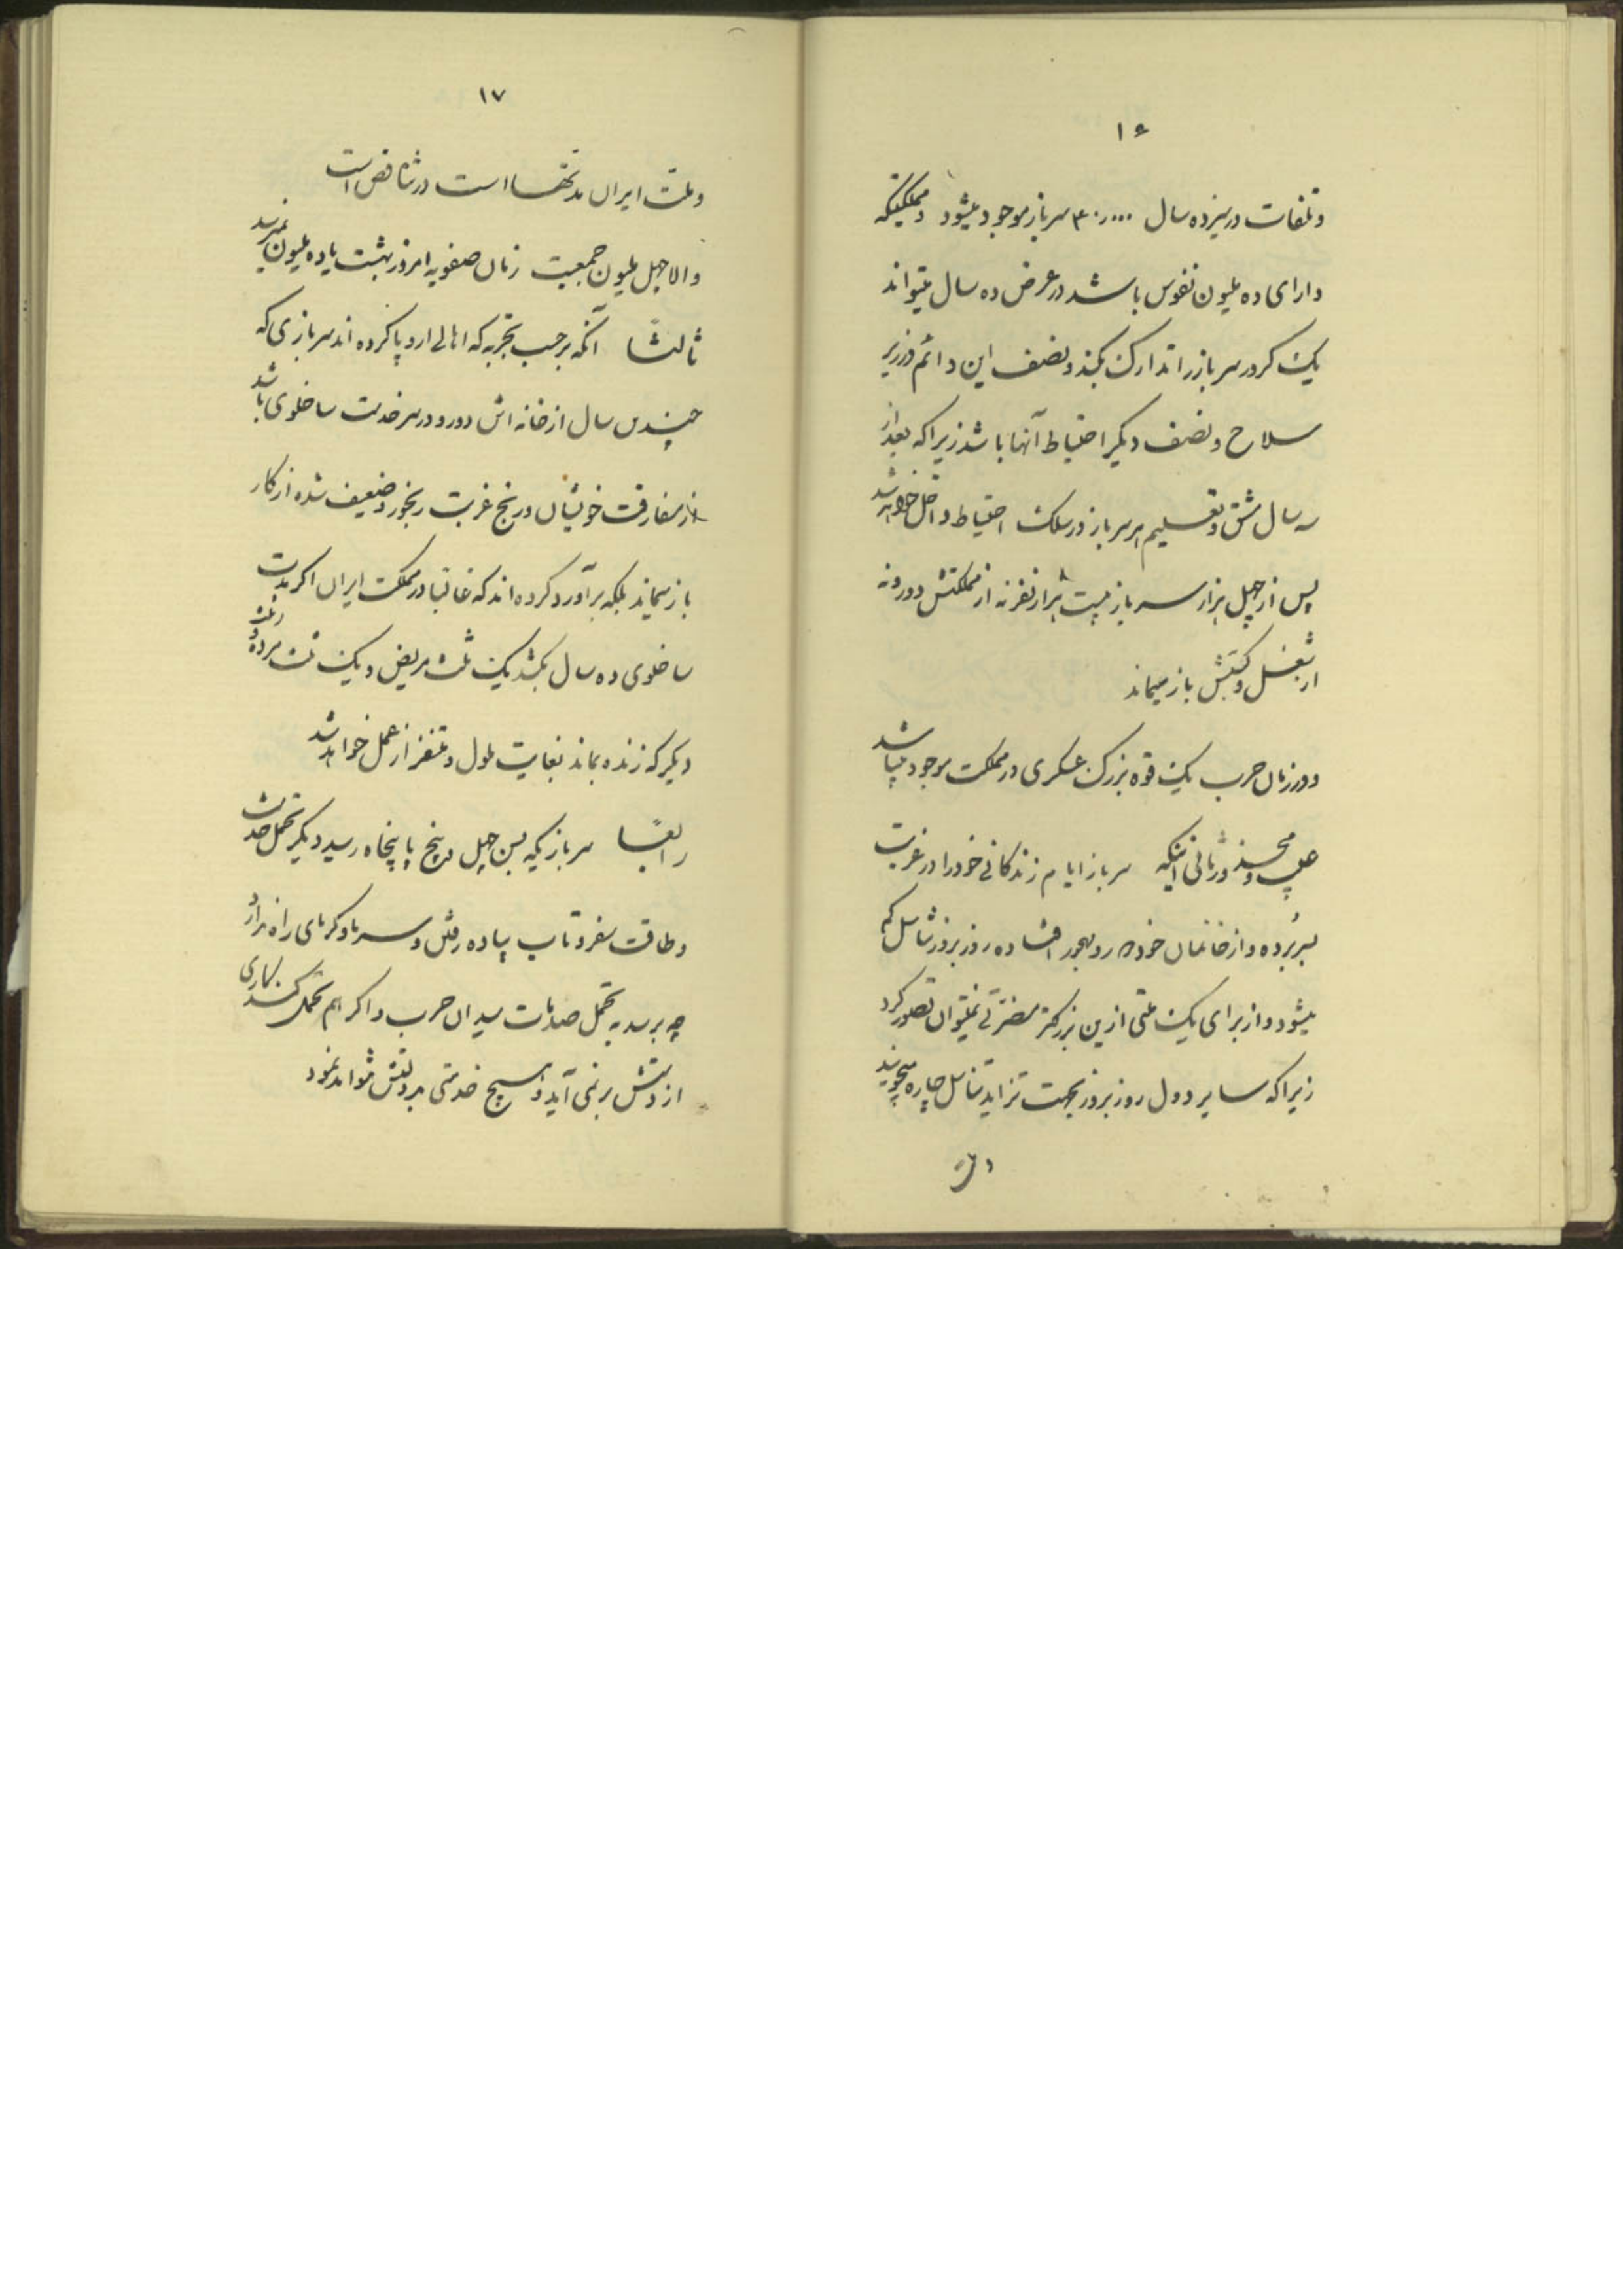 ۱۶
و تلفات در سیزده سال ۳۰۰۰۰۰ سرباز موجود میشود و مملکتیکه
دارای ده ملیون نفوس باشد در عرض ده سال میتواند
یک کرور سرباز را تدارک بکند و نصف این دائم در زیر
سلاح و نصف دیگر احتیاط آنها باشد زیرا که بعد از
سه سال مشق و تعلیم هر سرباز در سلک احتیاط داخل خواهد شد
پس از چهل هزار سرباز بیست هزار نفر نه از مملکتش دور و نه
از شغل و کسبش باز میماند
و در زمان حرب یک قوه بزرگ عسکری در مملکت موجود میباشد
عیب و محسنه در ثانی اینکه سرباز ایام زندگانی خود را در غربت
بسر برده و از خانمان خود دور و مهجور افتاده روز بروز تناسل کم
میشود و از برای یک ملتی ازین بزرگتر مضرتی نمیتوان تصور کرد
زیرا که سایر دول روز بروز بجهت تزاید تناسل چاره میجویند
و ملت
۱۷
و ملت ایران مدتها است در تناقص است
والا چهل ملیون جمعیت زمان صفویه امروز بهشت یا ده ملیون نمیرسد
ثالثاً آنکه بر حسب تجربه که اهالی اروپا کرده اند سربازی که
چندین سال از خانه اش دور و در سر خدمت ساخلوی باشد
از مفارقت خویشان و رنج غربت رنجور و ضعیف شده از کار
باز میماند بلکه برآورد کرده اند که غالبا در مملکت ایران اگر مدت
ساخلوی ده سال بکشد یک ثلث مریض و یک ثلث مرده و ثلث
دیگر که زنده بماند بغایت ملول و متنفر از عمل خواهد شد
رابعاً سربازیکه بسن چهل و پنج یا پنجاه رسید دیگر تحمل خدمت
و طاقت سفر و تاب پیاده رفتن و سرما و گرمای راه ندارد
چه برسد به تحمل صدمات میدان حرب و اگر هم تحمل کند کاری
از دستش بر نمی آید و هیچ خدمتی بدولتش نتواند نمود